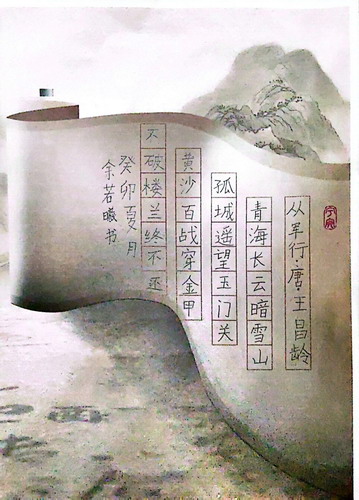 从军行·唐·王昌龄
青海长云暗雪山
孤城遥望玉门关
黄沙百战穿金甲
不破楼兰终不
癸卯夏月
余若曦书